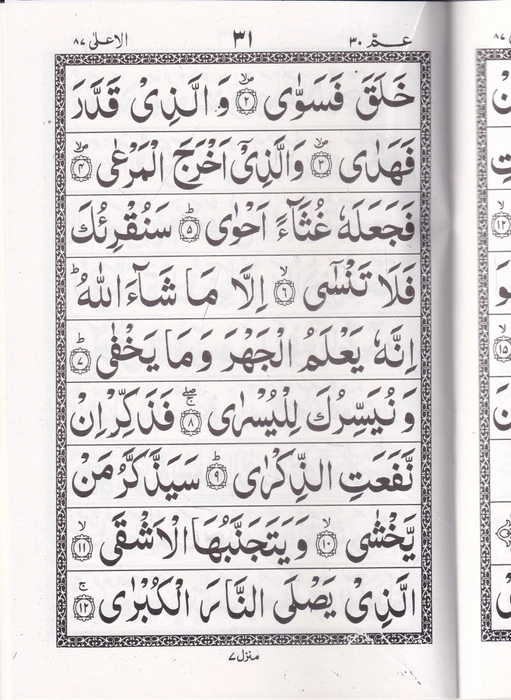 عمّ ٣٠ ٣١ الاعلىٰ ٨٧
خَلَقَ فَسَوّٰى ۙ﴿٢﴾ وَ الَّذِىْ قَدَّرَ
فَهَدٰى ۙ﴿٣﴾ وَالَّذِىْۤ اَخْرَجَ الْمَرْعٰى ۙ﴿٤﴾
فَجَعَلَهٗ غُثَآءً اَحْوٰى ؕ﴿٥﴾ سَنُقْرِئُكَ
فَلَا تَنْسٰٓى ۙ﴿٦﴾ اِلَّا مَا شَآءَ اللّٰهُ ؕ
اِنَّهٗ يَعْلَمُ الْجَهْرَ وَ مَا يَخْفٰى ؕ﴿٧﴾
وَنُيَسِّرُكَ لِلْيُسْرٰى ۚۖ﴿٨﴾ فَذَكِّرْ اِنْ
نَّفَعَتِ الذِّكْرٰى ؕ﴿٩﴾ سَيَذَّكَّرُ مَنْ
يَّخْشٰى ۙ﴿١٠﴾ وَ يَتَجَنَّبُهَا الْاَشْقَى ۙ﴿١١﴾
الَّذِىْ يَصْلَى النَّارَ الْكُبْرٰى ۚ﴿١٢﴾
منزل ٧